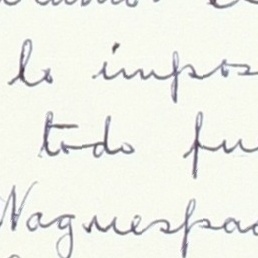 lo impos
todo fu
Naguespac